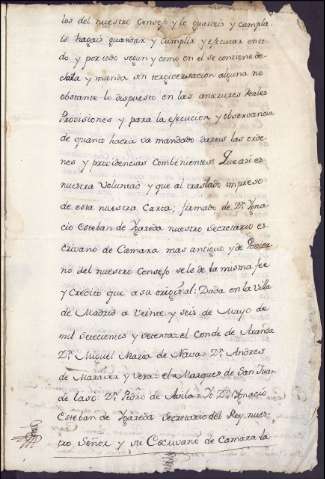 los del nuestro Consejo y le guardeis y cumplais
le hagais guardar y cumplir y executar en to-
do y por todo segun y como en el se contiene de-
clara y manda sin tergiversacion alguna no
obstante lo dispuesto en las anteriores Reales
Provisiones y para la execucion y observancia
de quanto lleva va mandado dareis las orde-
nes y providencias combenientes Que asi es
nuestra Voluntad y que al traslado impreso
de esta nuestra Carta, firmado de Dn. Ygna-
cio Esteban de Ygareda nuestro Secretario es-
crivano de Camara mas antiguo y de Govier-
no del nuestro Consejo se le de la misma fee
y Credito que a su original: Dada en la Villa
de Madrid a veinte y seis de Mayo de
mil setecientos y setenta: el Conde de Aranda
Dn. Miguel Maria de Nava: Dn. Andres
de Maraver y Vera: el Marques de San Juan
de Taso: Dn. Pedro de Avila: Yo Dn. Ygnacio
Esteban de Ygareda Secretario del Rey nues-
tro Señor y su Escrivano de Camara la